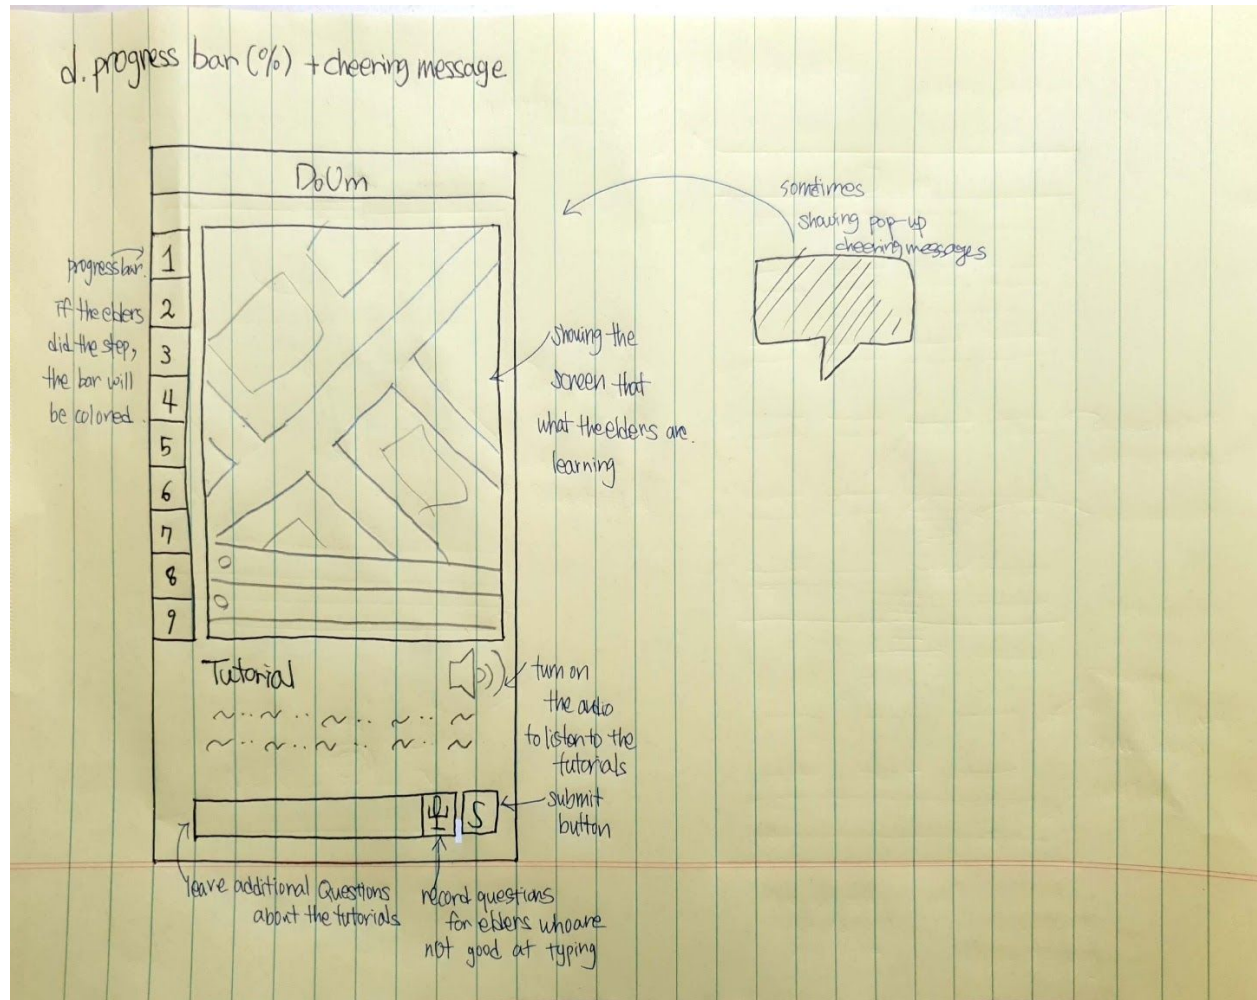 d. progress bar (%) + cheering message
DoUm
sometimes
showing pop-up
cheering messages
progress bar.
if the elders
did the step,
the bar will
be colored.
1
2
3
4
5
6
7
8
9
showing the
screen that
what the elders are.
learning
Tutorial
turn on
the audio
to listen to the
tutorials
S
submit
button
leave additional Questions
about the tutorials
record questions
for elders who are
not good at typing